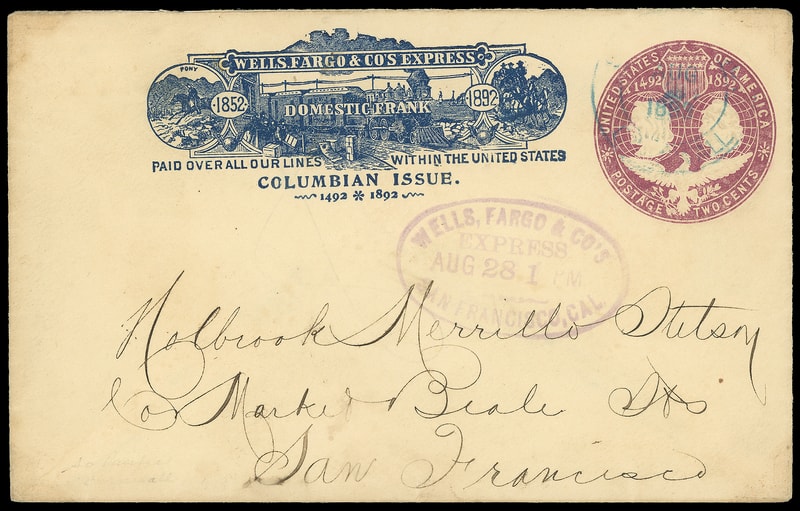 WELLS, FARGO & CO'S EXPRESS
PONY
1852
DOMESTIC FRANK
1892
PAID OVER ALL OUR LINES WITHIN THE UNITED STATES
COLUMBIAN ISSUE.
1492 1892
UNITED STATES OF AMERICA
1492 1892
POSTAGE TWO CENTS
WELLS, FARGO & CO'S
EXPRESS
AUG 28 1 PM
SAN FRANCISCO, CAL.
Holbrook Merrillo Stetson
Co Market Beale Sts
San Francisco